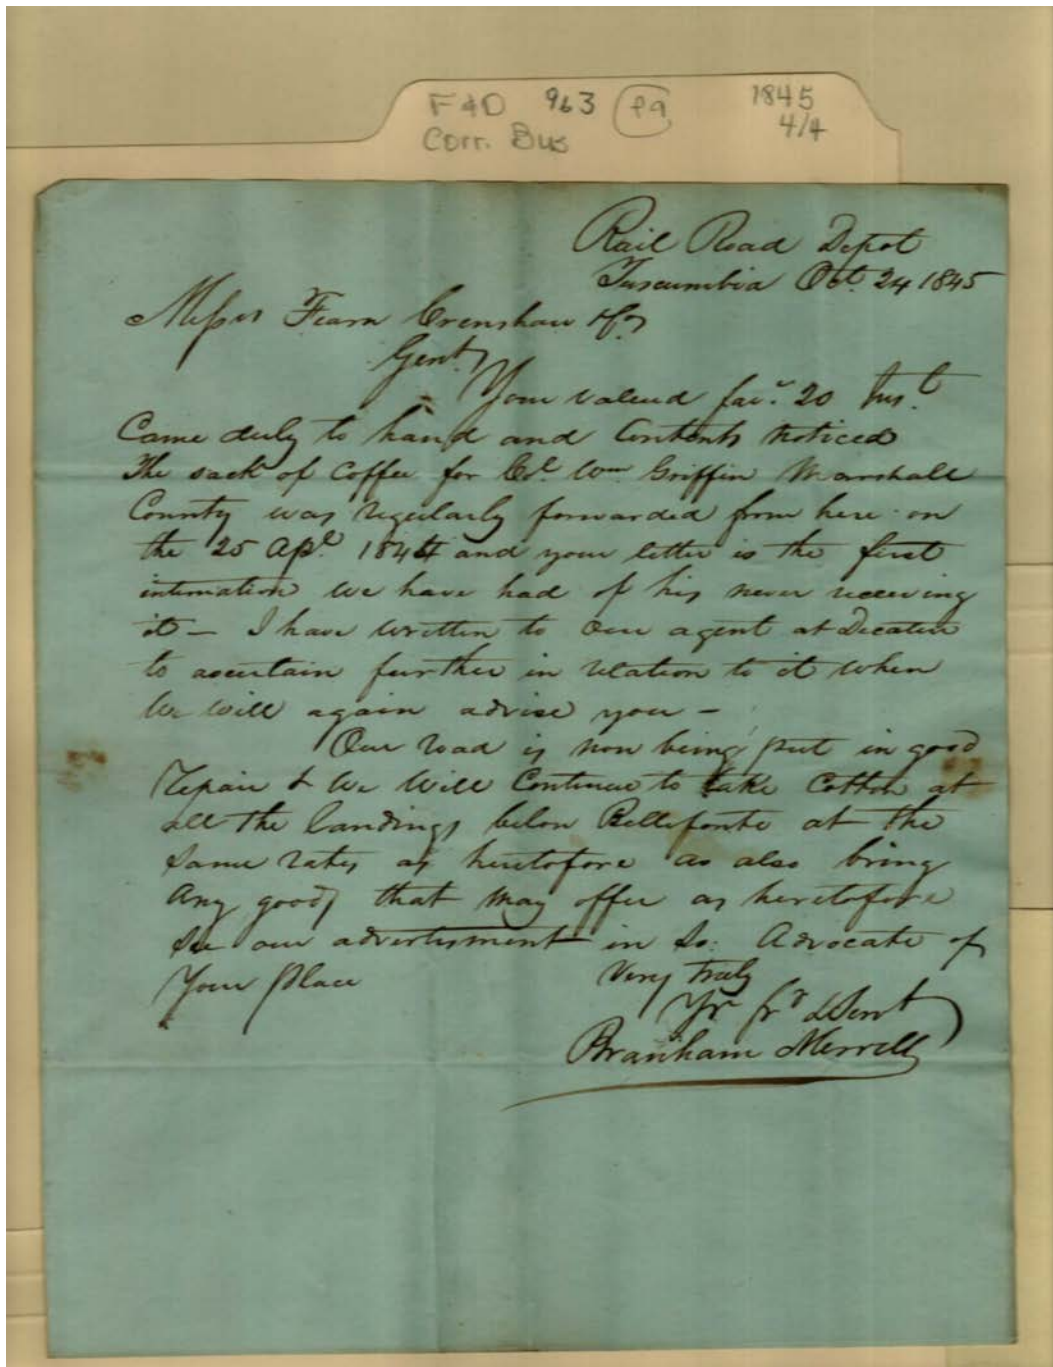 F&D 963 P9 1845
Corr. Bus 4/4
Rail Road Depot
Tuscumbia Oct. 24 1845
Messrs Fearn Crenshaw & Co
Gent
Your valued fav.r 20 Inst.
Came duly to hand and Contents Noticed
The sack of Coffee for Col. Wm Griffin Marshall
County was regularly forwarded from here on
the 25 Apl. 1844 and your letter is the first
intimation we have had of his never receiving
it – I have written to Our agent at Decatur
to ascertain further in relation to it when
We will again advise you –
Our road is now being put in good
repair & We Will Continue to take Cotton at
all the landings below Bellefonte at the
Same rates as heretofore as also bring
Any goods that may offer as heretofore
See our advertisment in So. Advocate of
Your place Very truly
Yr fr &
Branham Merrill